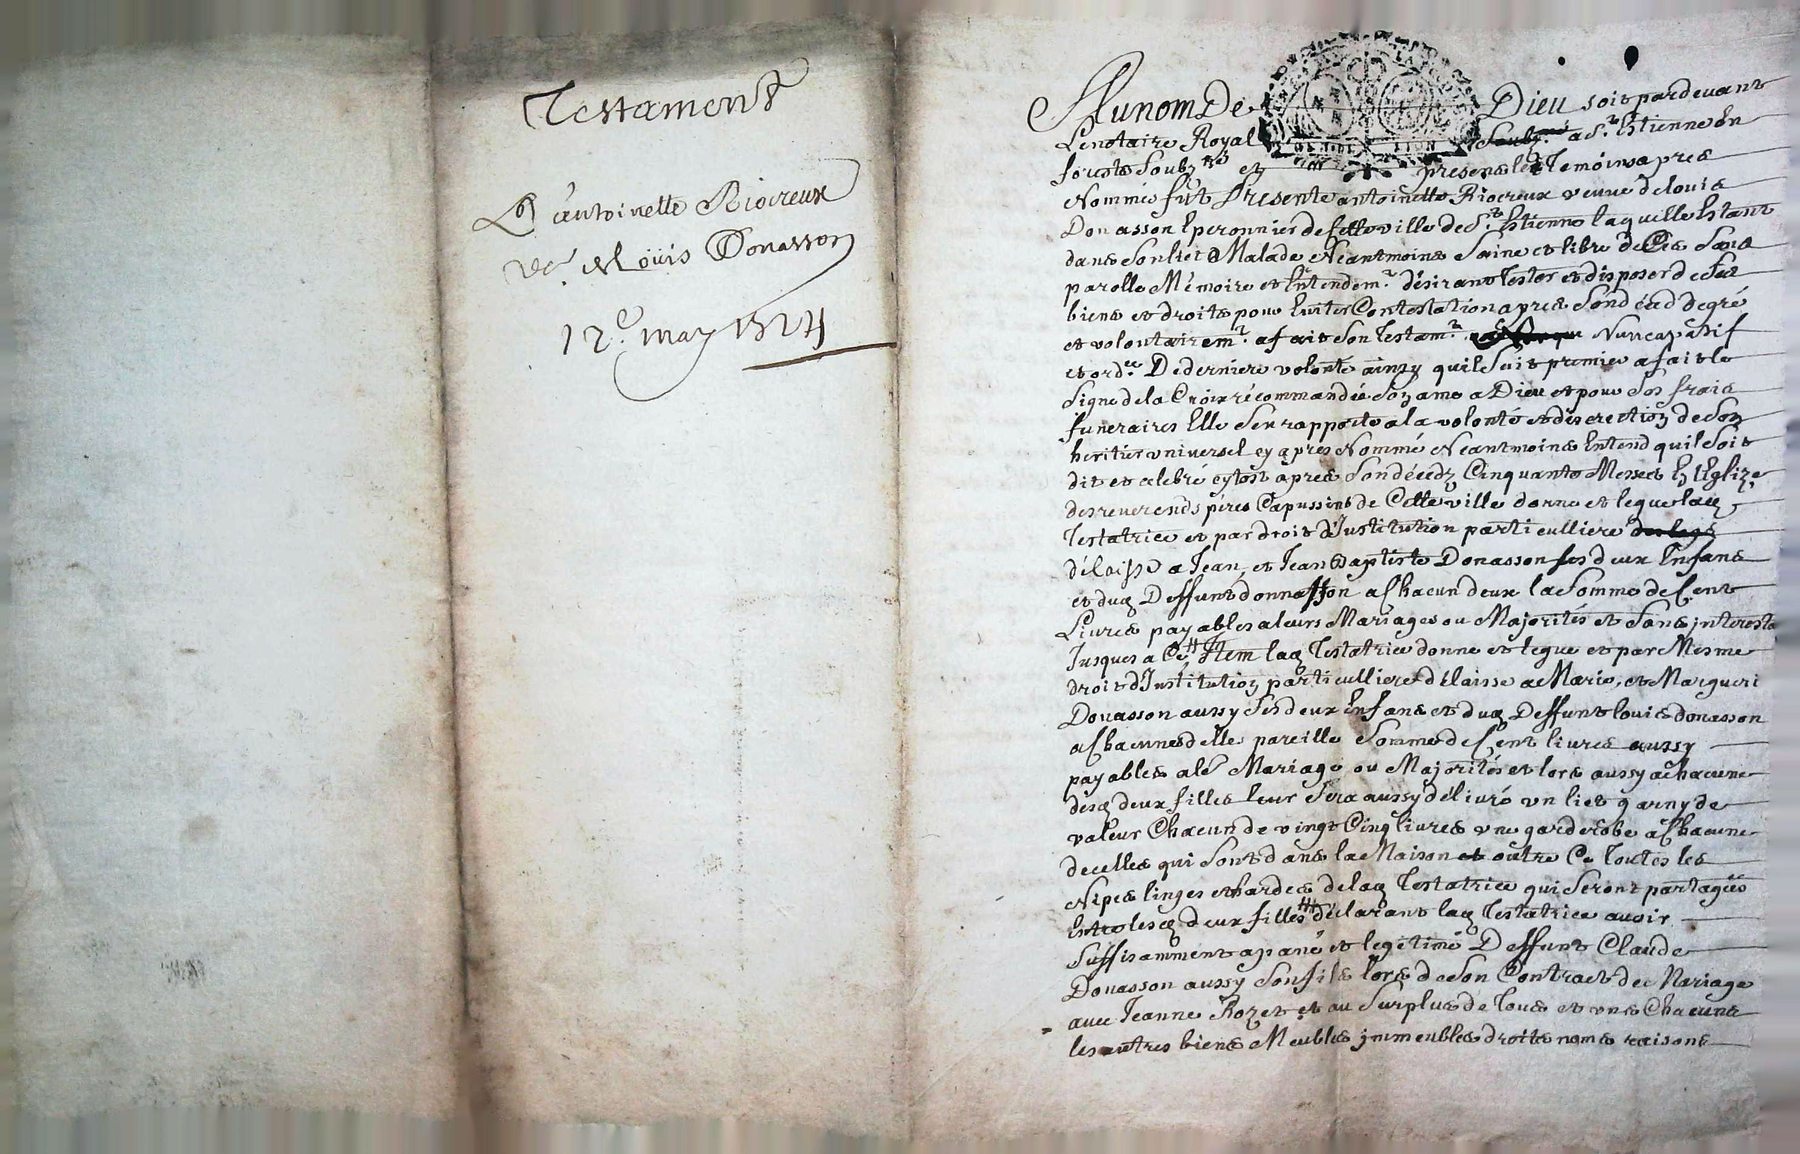 Testament
D'antoinette Riocreux
ve de Loüis Donasson
12e. may 1724
Au nom De Dieu soit pardevant
Le notaire Royal Soubz.né a St. Etienne En
forests Soubzné et presens les Temoins apres
Nommés fut Presente antoinette Riocreux veuve de louis
Donasson Eperonnier de Cette ville de St. Etienne laquelle Estant
dans Son liet Malade Neantmoins Saine et libre de Ses Sens
parolle Mémoire et Entendemt. désirant Tester et disposer de Ses
biens et droits pour Eviter Contestation apres Son déced de gré
et volontairemt. a fait Son Testamt. Nuncupatif
et ordce. De derniere volonté ainsy quil Suit premier a fait le
Signe de la Croix récommandée Son ame a Dieu et pour Ses frais
funeraires Elle Sen rapporte a la volonté et discrection de Son
heritier universel cy apres Nommé Neantmoins Entend quil Soit
dit et celebré cytost apres Son décedz Cinquante Messes En lEglize
des reverends péres Capussins de Cette ville donne et legue lad.
Testatrice et par droit dInstitution particulliere
délaisse a Jean, et Jean Baptiste Donasson Ses deux Enfans
et dud. Deffunt donnasson a Chacun deux la Somme de Cent
Livres payables a leurs Mariages ou Majorités et Sans interests
Jusques a Ce Item lad. Testatrice donne et legue et par Mesme
droit dInstitution particulliere délaisse a Marie, et Margueri
Donasson aussy Ses deux Enfans et dud. Deffunt louis donasson
a Chacune delles pareille Somme de Cent livres aussy
payables a le Mariage ou Majorités et lors aussy a chacune
desd. deux filles leur Sera aussy délivré un liet garny de
valeur Chacun de vingt Cinq livres une garderobe a Chacune
de celles qui Sont dans la Maison et outre Ce Toutes les
Nipes linges et hardes de lad. Testatrice qui Seront partagées
Entre lesd. deux filles déclarant lad. Testatrice avoir
Suffisamment apané et legitimé Deffunt Claude
Donasson aussy Son fils lors de Son Contract de Mariage
avec Jeanne Rozet et au Surplus de Tous et uns Chacuns
les autres biens Meubles jmmeubles droits noms raisons